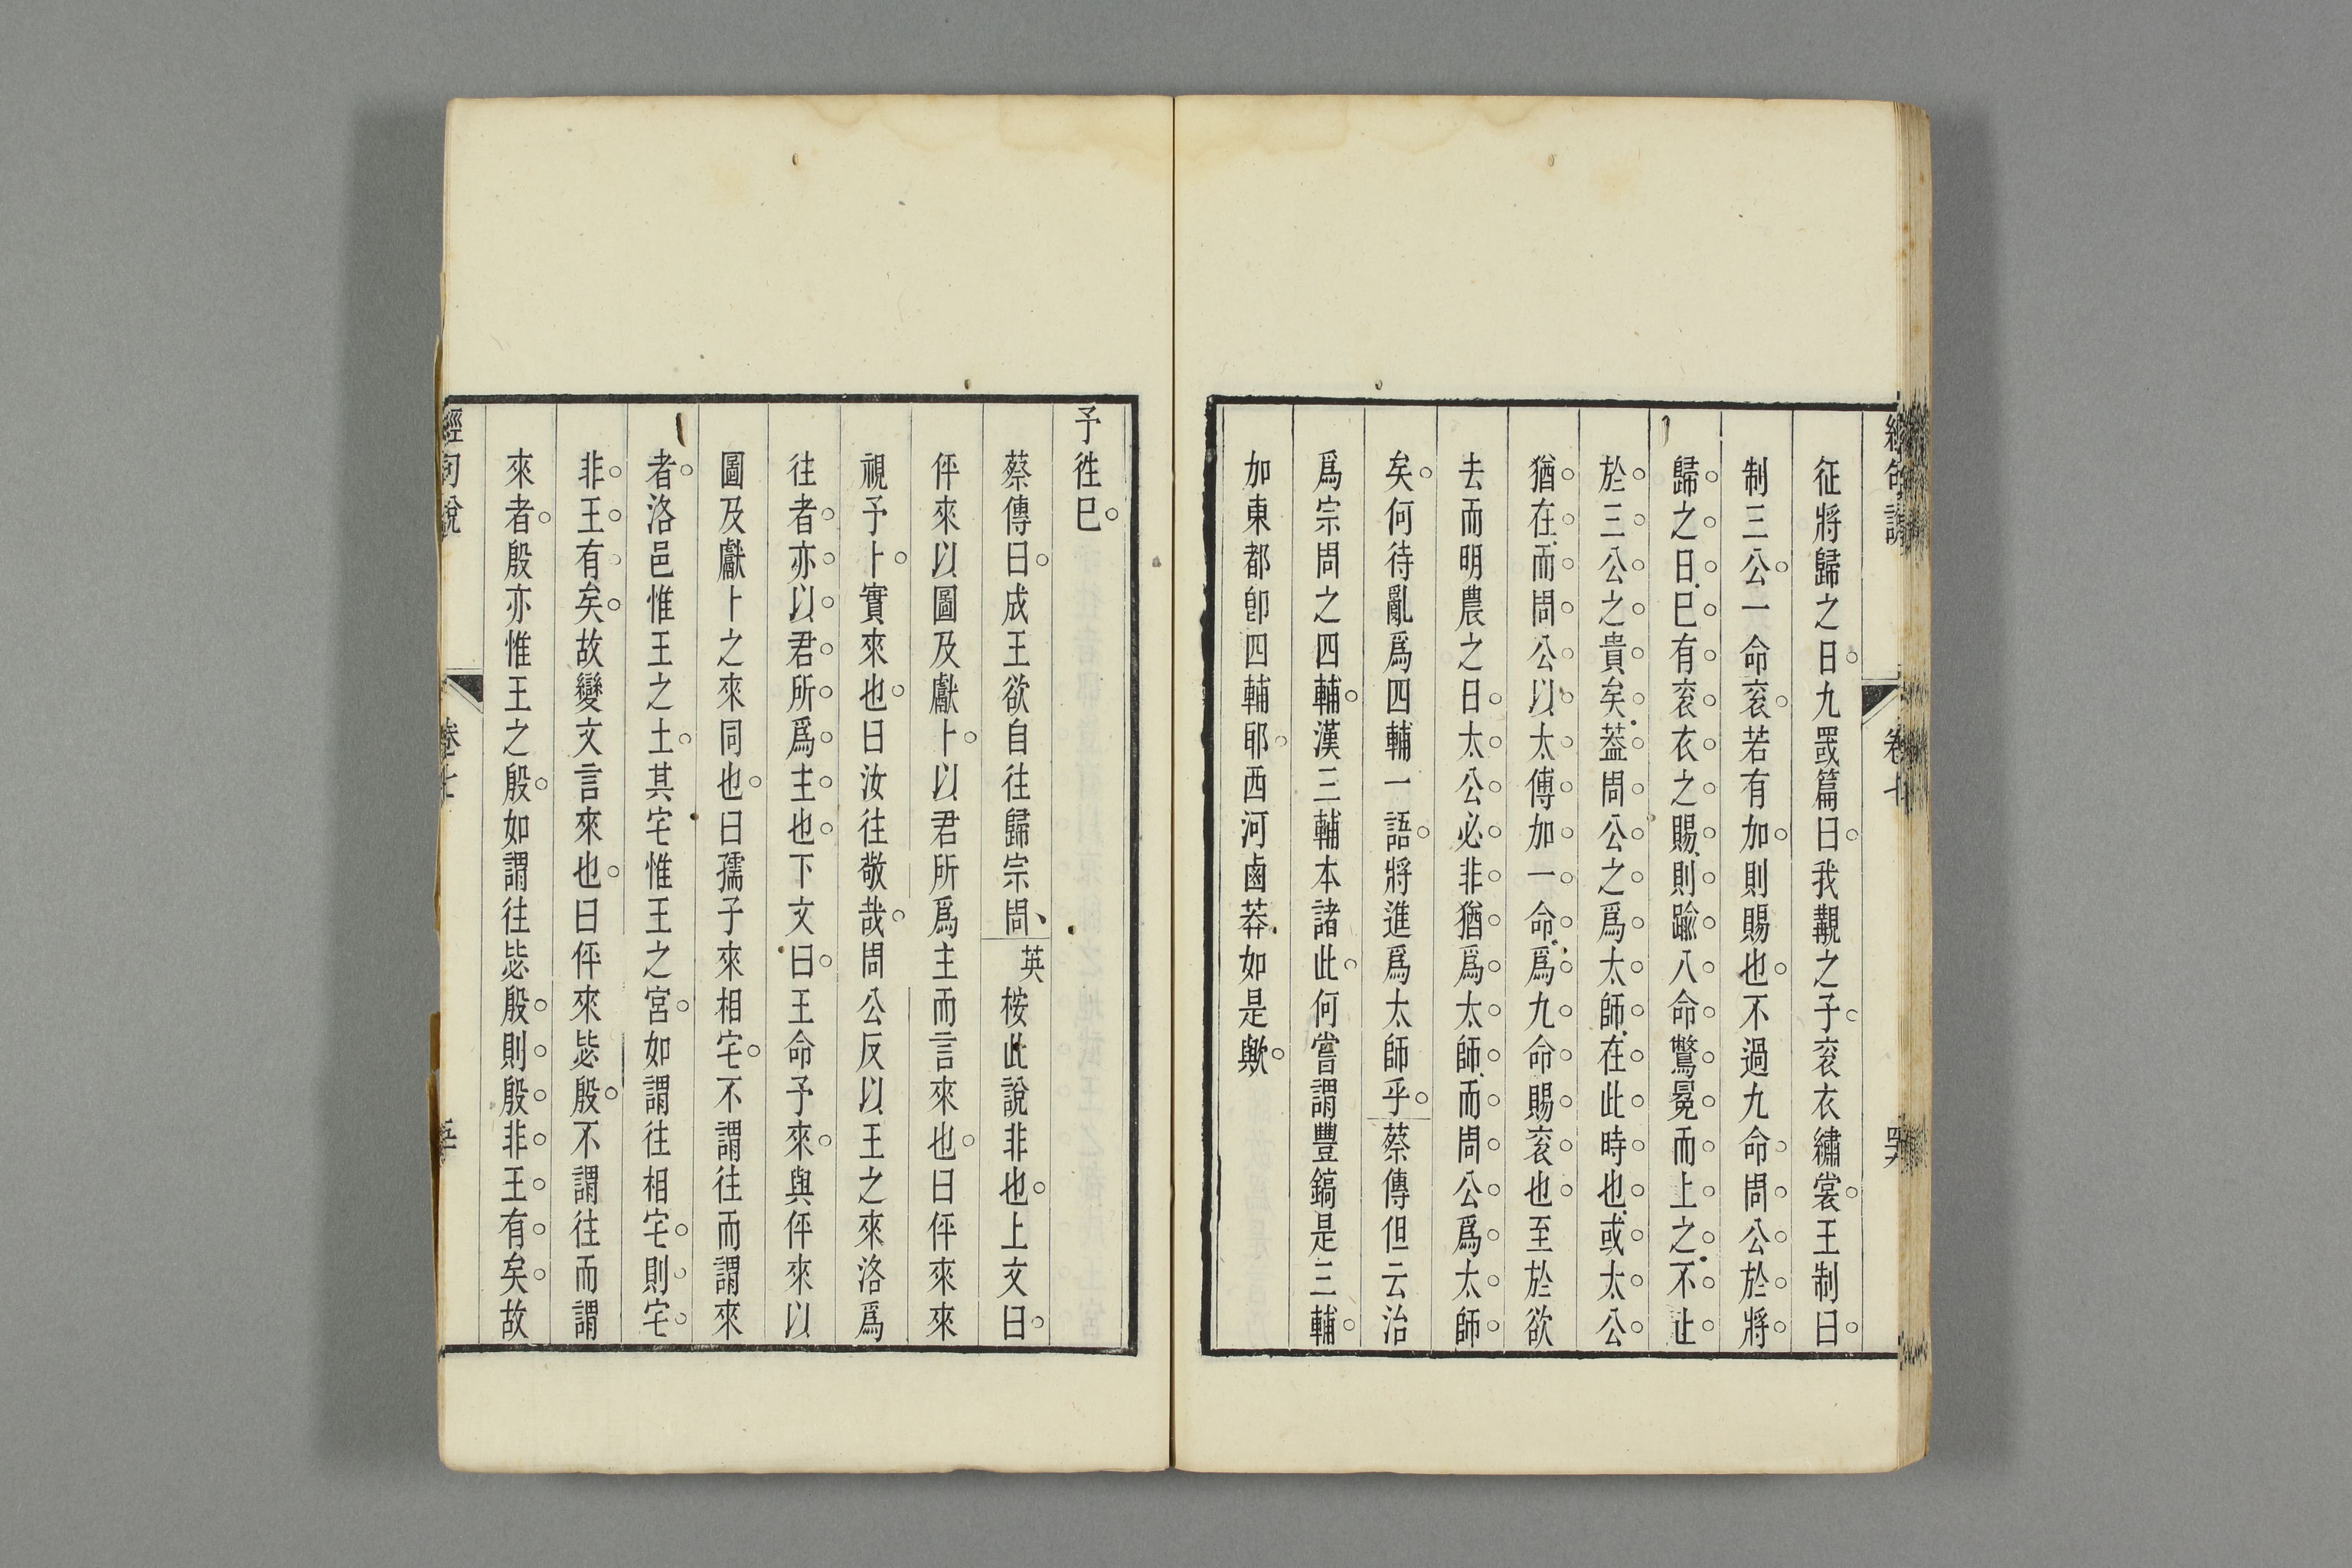 經句說
卷七
征將歸之日九罭篇曰我覯之子衮衣繡裳王制曰
制三公一命衮若有加則賜也不過九命周公於將
歸之日已有衮衣之賜則踰八命鷩冕而上之不止
於三公之貴矣葢周公之爲太師在此時也或太公
猶在而周公以太傅加一命爲九命賜衮也至於欲
去而明農之日太公必非猶爲太師而周公爲太師
矣何待亂爲四輔一語將進爲太師乎蔡傳但云治
爲宗周之四輔漢三輔本諸此何嘗謂豐鎬是三輔
加東都卽四輔耶西河鹵莽如是歟
予徃已
蔡傳曰成王欲自往歸宗周英桉此說非也上文曰
伻來以圖及獻卜以君所爲主而言來也曰伻來來
視予卜實來也曰汝往敬哉周公反以王之來洛爲
往者亦以君所爲主也下文曰王命予來與伻來以
圖及獻卜之來同也曰孺子來相宅不謂往而謂來
者洛邑惟王之土其宅惟王之宮如謂往相宅則宅
非王有矣故變文言來也曰伻來毖殷不謂往而謂
來者殷亦惟王之殷如謂往毖殷則殷非王有矣故
經句說
卷七